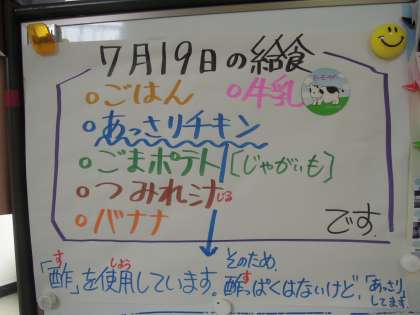 7月19日の給食
○ごはん ○牛乳
○あっさりチキン
○ごまポテト[じゃがいも]
○つみれ汁じる
○バナナ
です。
「酢す」を使用しようしています。そのため、酢すっぱくはないけど、「あっさり」してます。